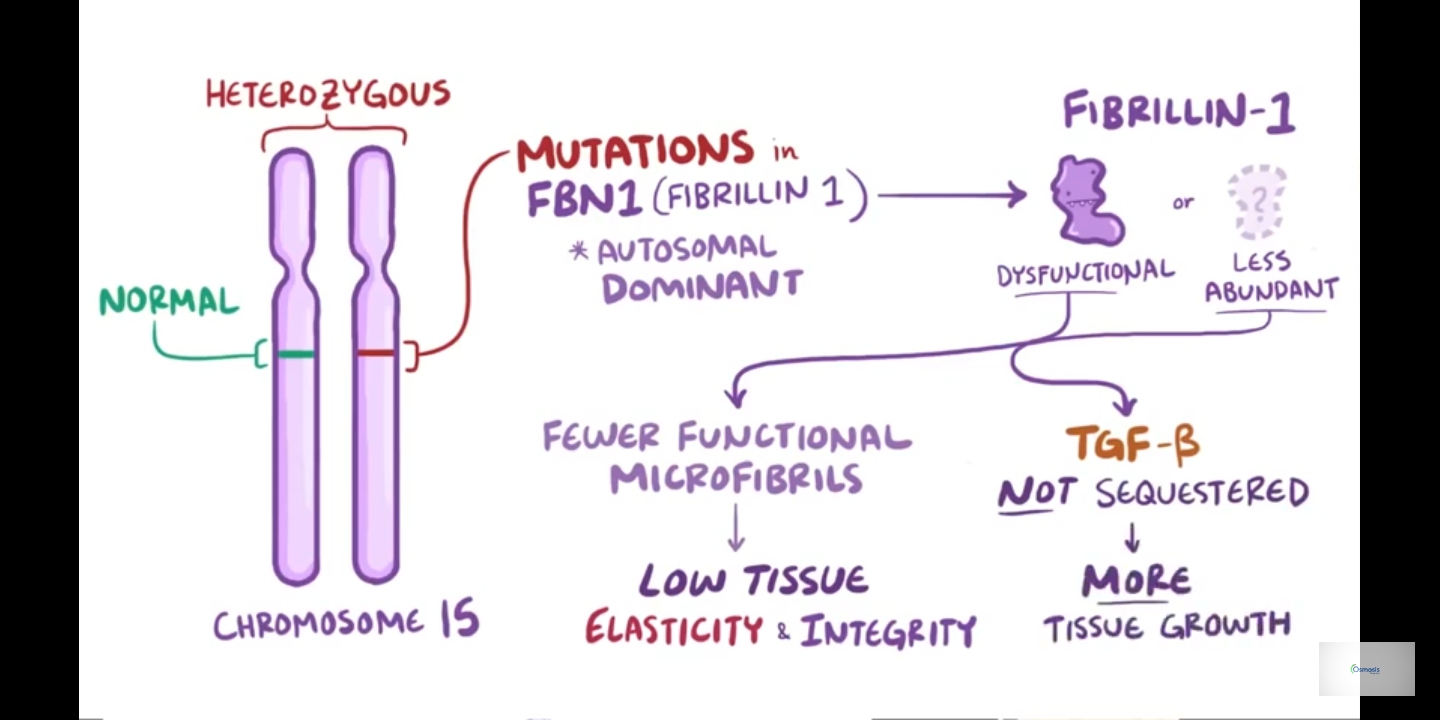 HETEROZYGOUS
NORMAL
CHROMOSOME 15
MUTATIONS in
FBN1 (FIBRILLIN 1)
* AUTOSOMAL
DOMINANT
FIBRILLIN-1
or
?
DYSFUNCTIONAL
LESS
ABUNDANT
FEWER FUNCTIONAL
MICROFIBRILS
LOW TISSUE
ELASTICITY & INTEGRITY
TGF-β
NOT SEQUESTERED
MORE
TISSUE GROWTH
Osmosis